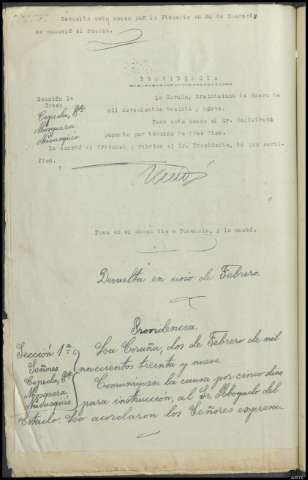 Devuelta esta causa por la Fiscalía en 24 de Enero, y
se acusará el recibo.
PROVIDENCIA
Sección 1ª
Señores
Cepeda, Pte
Mosquera
La Coruña, veintiseis de Enero de
mil novecientos treinta y nueve.
Pase esta causa al Sr. Magistrado
ponente por término de tres días.
Lo acordó el Tribunal y rubrica el Sr. Presidente, lo que certi-
fico.
Pasa en el mismo día a Ponencia, y lo anoto.
Devuelta en uno de Febrero.
Providencia.
Sección 1ª
Señores
Cepeda, Pte
Mosquera
La Coruña, dos de Febrero de mil
novecientos treinta y nueve.
Comuniquese la causa por cinco días
para instrucción, al Sr. Abogado del
Estado. Lo acordaron los Señores expresa-